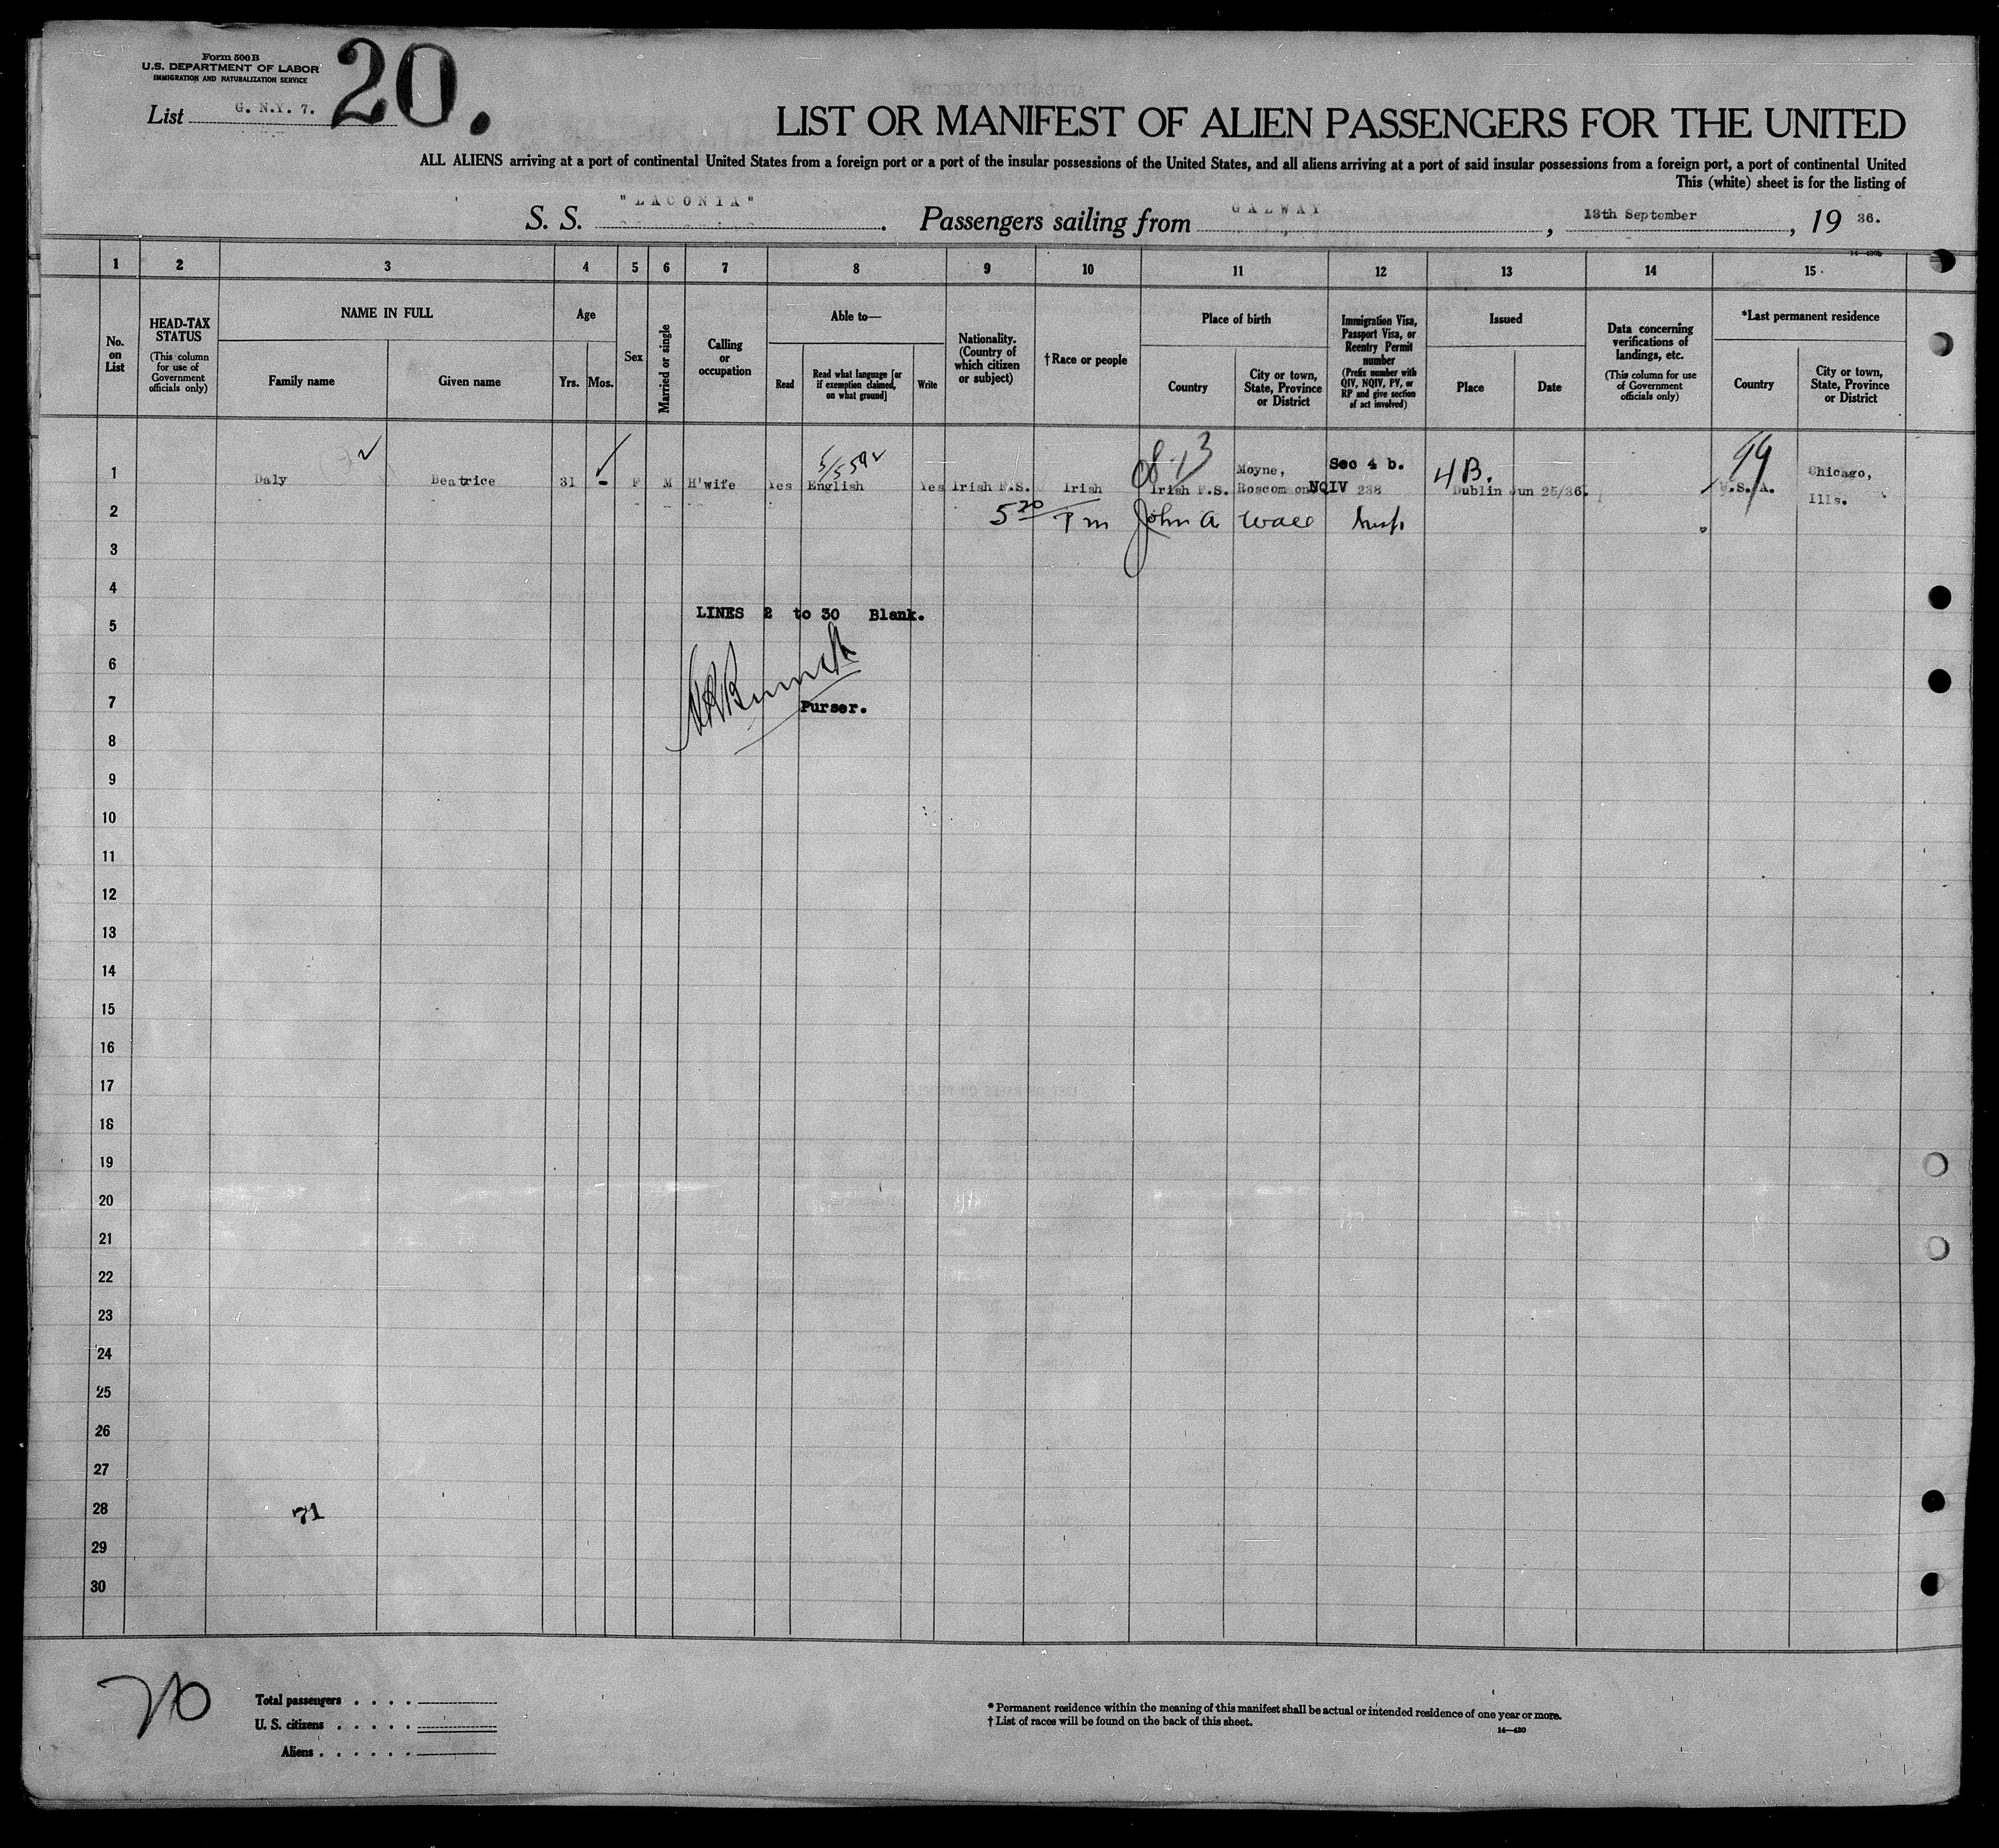 Form 500 B
U.S. DEPARTMENT OF LABOR
IMMIGRATION AND NATURALIZATION SERVICE
List G. N.Y. 7. 20.
LIST OR MANIFEST OF ALIEN PASSENGERS FOR THE UNITED
ALL ALIENS arriving at a port of continental United States from a foreign port or a port of the insular possessions of the United States, and all aliens arriving at a port of said insular possessions from a foreign port, a port of continental United
This (white) sheet is for the listing of
S. S. "LACONIA". Passengers sailing from GALWAY, 13th September, 19 36.
14—430b
1 2 3 4 5 6 7 8 9 10 11 12 13 14 15
No. on List
HEAD-TAX STATUS
(This column for use of Government officials only)
NAME IN FULL
Family name
Given name
Age
Yrs. Mos.
Sex
Married or single
Calling or occupation
Able to—
Read
Read what language [or if exemption claimed, on what ground]
Write
Nationality. (Country of which citizen or subject)
†Race or people
Place of birth
Country
City or town, State, Province or District
Immigration Visa, Passport Visa, or Reentry Permit number
(Prefix number with QIV, NQIV, PV, or RP and give section of act involved)
Issued
Place
Date
Data concerning verifications of landings, etc.
(This column for use of Government officials only)
*Last permanent residence
Country
City or town, State, Province or District
5/5592 Moyne, Sec 4 b. 4B. 99 Chicago,
1 Daly Beatrice 31 - F M H'wife Yes English Yes Irish F.S. Irish Irish F.S. Roscommon NQIV 238 Dublin Jun 25/36. U.S.A. Ills.
2 5 20 Pm John A Wall Insp.
3
4
LINES 2 to 30 Blank.
5
6
7 Purser.
8
9
10
11
12
13
14
15
16
17
18
19
20
21
22
23
24
25
26
27
28 71
29
30
20
Total passengers . . . .
U. S. citizens . . . . .
Aliens . . . . . .
* Permanent residence within the meaning of this manifest shall be actual or intended residence of one year or more.
† List of races will be found on the back of this sheet.
14—430